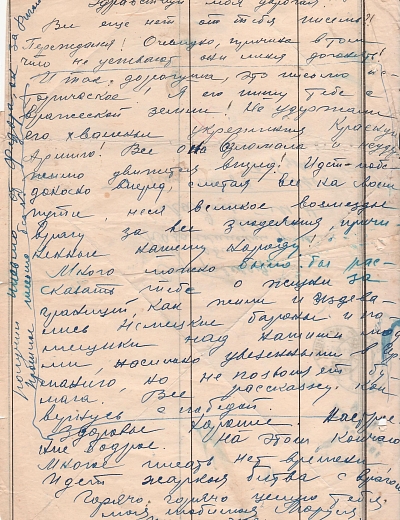 Здравствуй моя дорогая!
Все еще нет от тебя писем?!
Переждем! Очевидно, причина в том
что не успевают они меня догонять!
И так, дорогуша, это письмо ис-
торическое! Я его пишу тебе с
вражеской земли! Не удержали
его хваленые укрепления Красную
Армию! Все она сломала и неуд
жимо движется вперед! Идет побе-
доносно вперед, сметая все на своем
пути, неся великое возмездие
врагу за все злодеяния, причи
ненные нашему народу!
Много можно было бы рас-
сказать тебе о жизни за
границей, как жили и издева-
лись немецкие бароны и по-
мещики над нашими людь
ми, насильно увезенными в
но не позволяет бу-
мага. Все расскажу, как
вернусь с победой.
Здоровье хорошее. Настрое-
ние бодрое. На этом кончаю
Много писать нет времени
Идет жаркая битва с врагом
Горячо, горячо целую тебя
моя любимая Мария
Получил письмо от